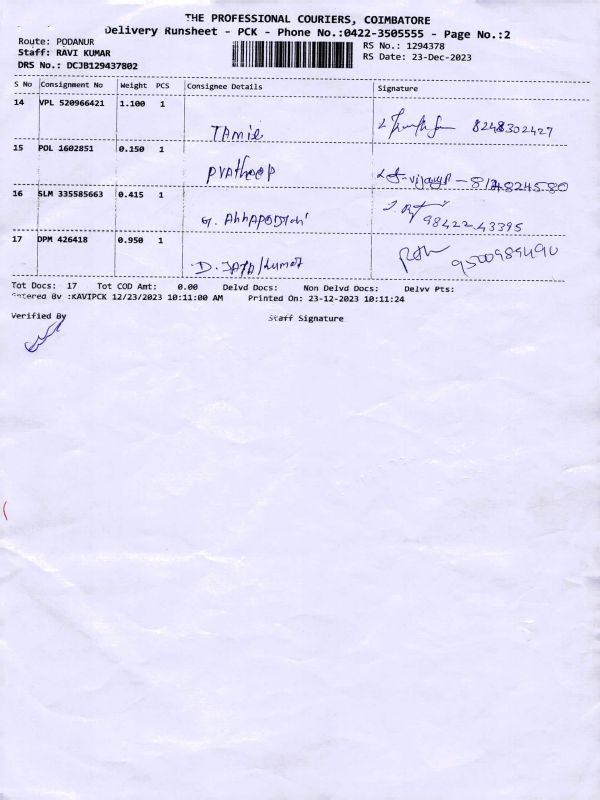 THE PROFESSIONAL COURIERS, COIMBATORE
Delivery Runsheet - PCK - Phone No.:0422-3505555 - Page No.:2
Route: PODANUR
RS No.: 1294378
Staff: RAVI KUMAR
RS Date: 23-Dec-2023
DRS No.: DCJB129437802
S No Consignment No Weight PCS Consignee Details Signature
14 VPL 520966421 1.100 1
TAmil 8248302427
15 POL 1602851 0.150 1
PVAtheeP
16 SLM 335585663 0.415 1
G. 98422 43395
17 DPM 426418 0.950 1
D. 9500989490
Tot Docs: 17 Tot COD Amt: 0.00 Delvd Docs: Non Delvd Docs: Delvv Pts:
Entered By :KAVIPCK 12/23/2023 10:11:00 AM Printed On: 23-12-2023 10:11:24
Verified By Staff Signature